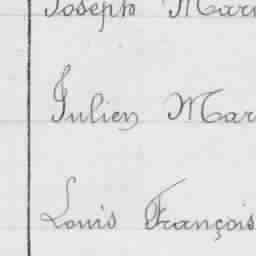 Joseph Mar
Julien Mar
Louis François